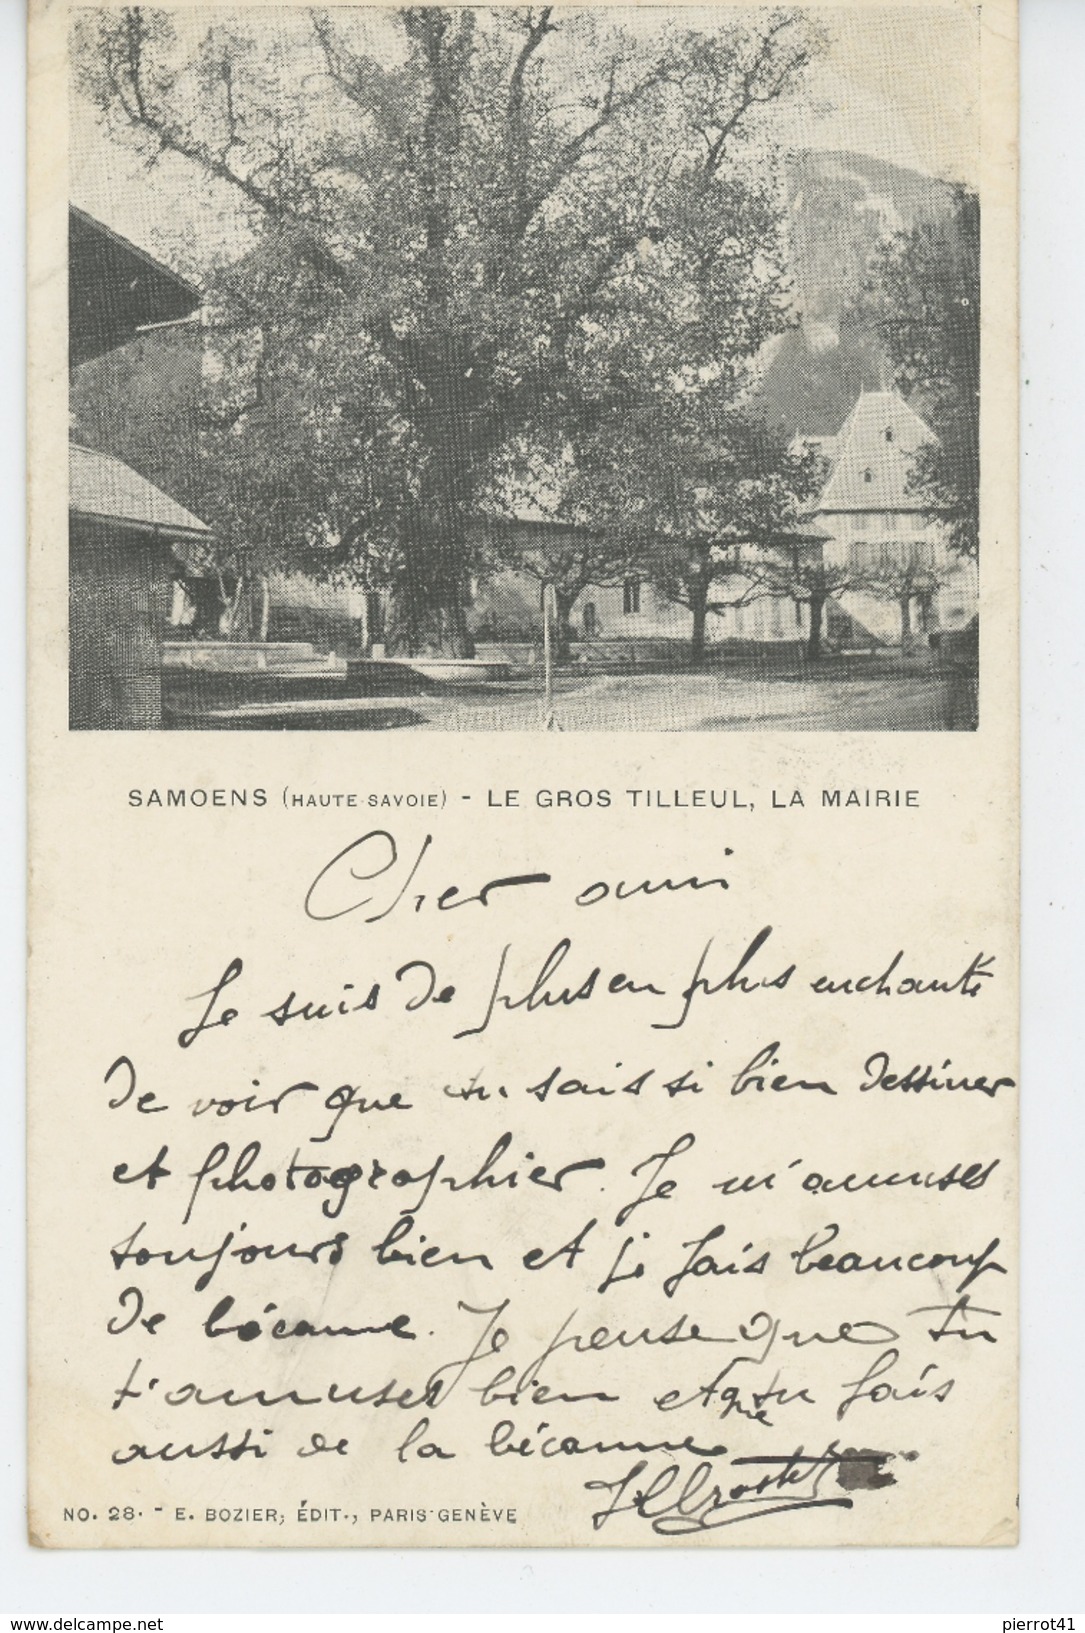 SAMOENS (HAUTE-SAVOIE) - LE GROS TILLEUL, LA MAIRIE
Cher ami
Je suis de plus en plus enchanté
de voir que tu sais si bien dessiner
et photographier. Je m'amuses
toujours bien et je fais beaucoup
de bécanne. Je pense que tu
t'amuses bien et que tu fais
aussi de la bécanne
NO. 28. - E. BOZIER, ÉDIT., PARIS-GENÈVE
www.delcampe.net
pierrot41